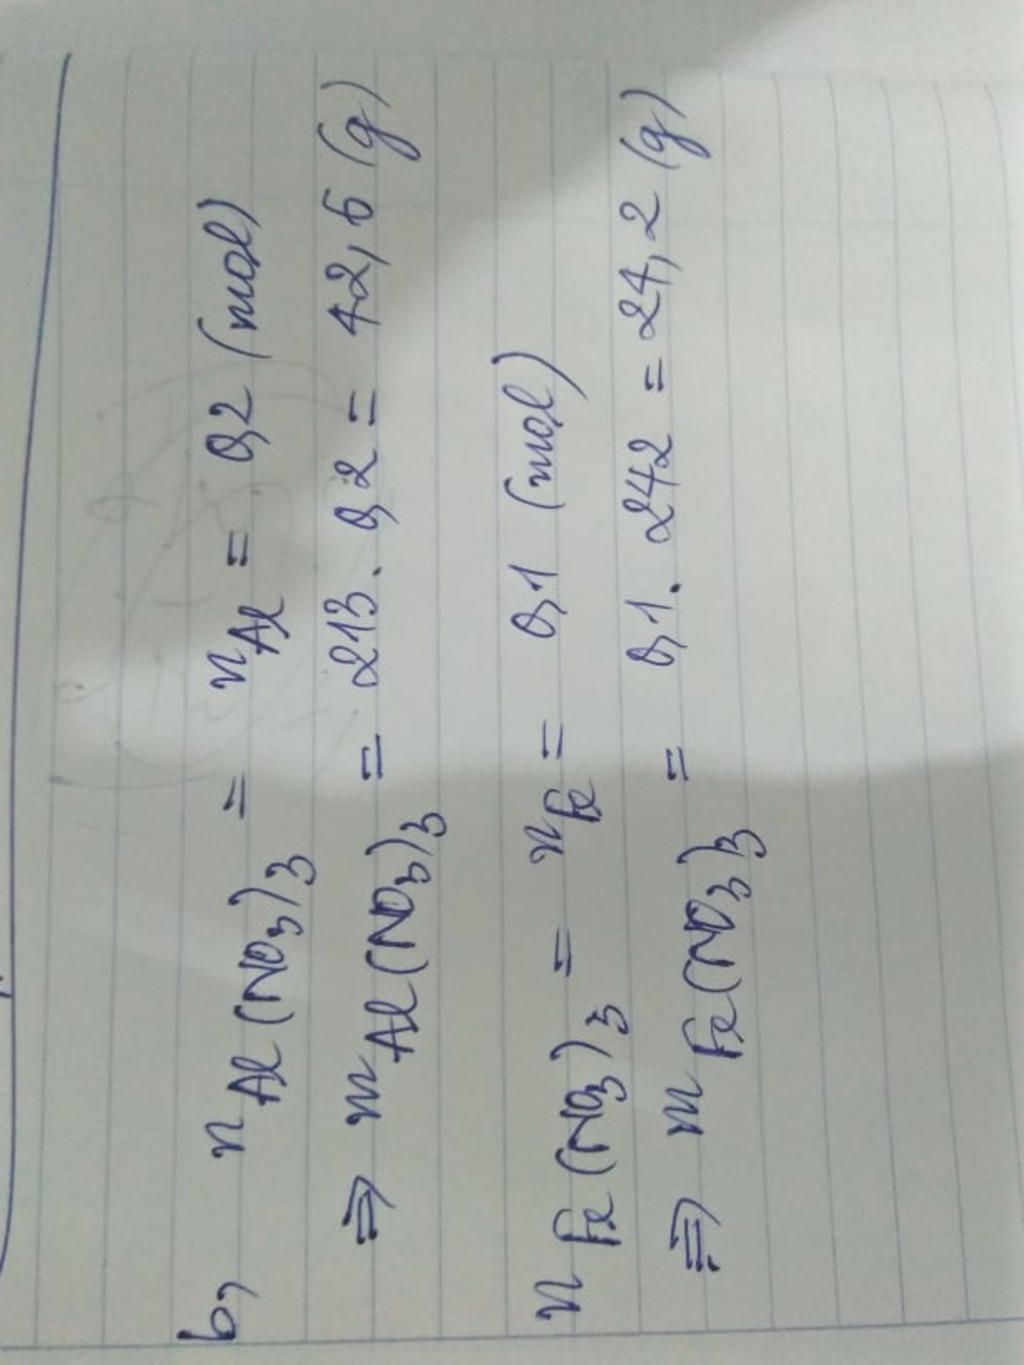 b, n Al(NO3)3 = nAl = 0,2 (mol)
⇒ m Al(NO3)3 = 213. 0,2 = 42,6 (g)
n Fe(NO3)3 = nFe = 0,1 (mol)
⇒ m Fe(NO3)3 = 0,1. 242 = 24,2 (g)